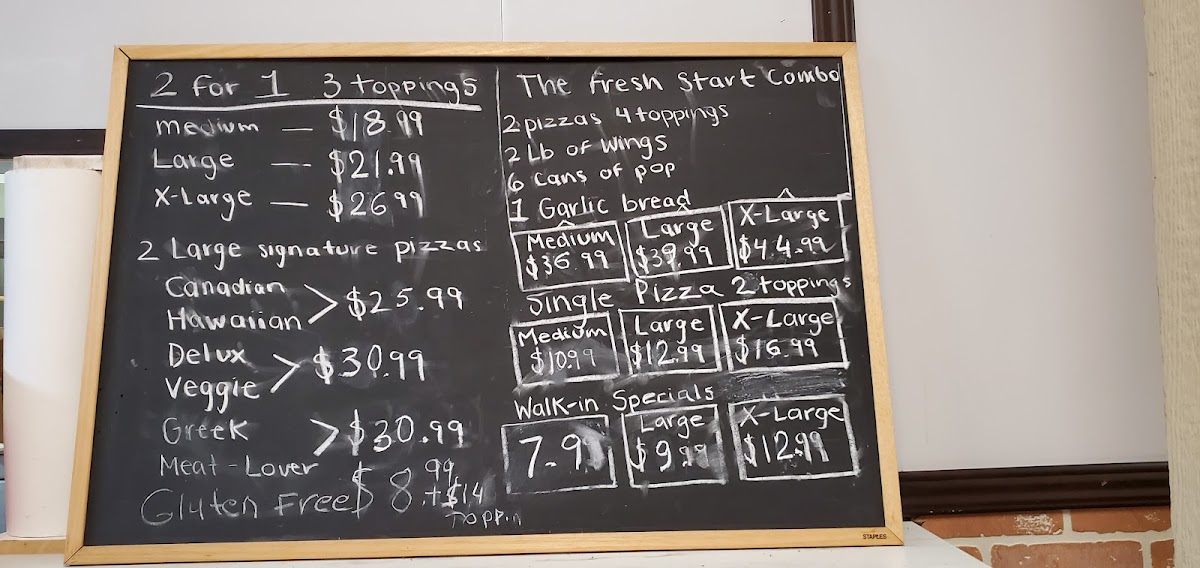 2 For 1 3 toppings
medium — $18.99
Large — $21.99
X-Large — $26.99
2 Large signature pizzas
Canadian
Hawaiian > $25.99
Delux
Veggie > $30.99
Greek > $30.99
Meat-Lover
Gluten Free $8.99 + $14
Toppin
The Fresh Start Combo
2 pizzas 4 toppings
2 Lb of wings
6 Cans of pop
1 Garlic bread
Medium Large X-Large
$36.99 $39.99 $44.99
Single Pizza 2 toppings
Medium Large X-Large
$10.99 $12.99 $16.99
Walk-in Specials
Large X-Large
7.9 $9.99 $12.99
STAPLES